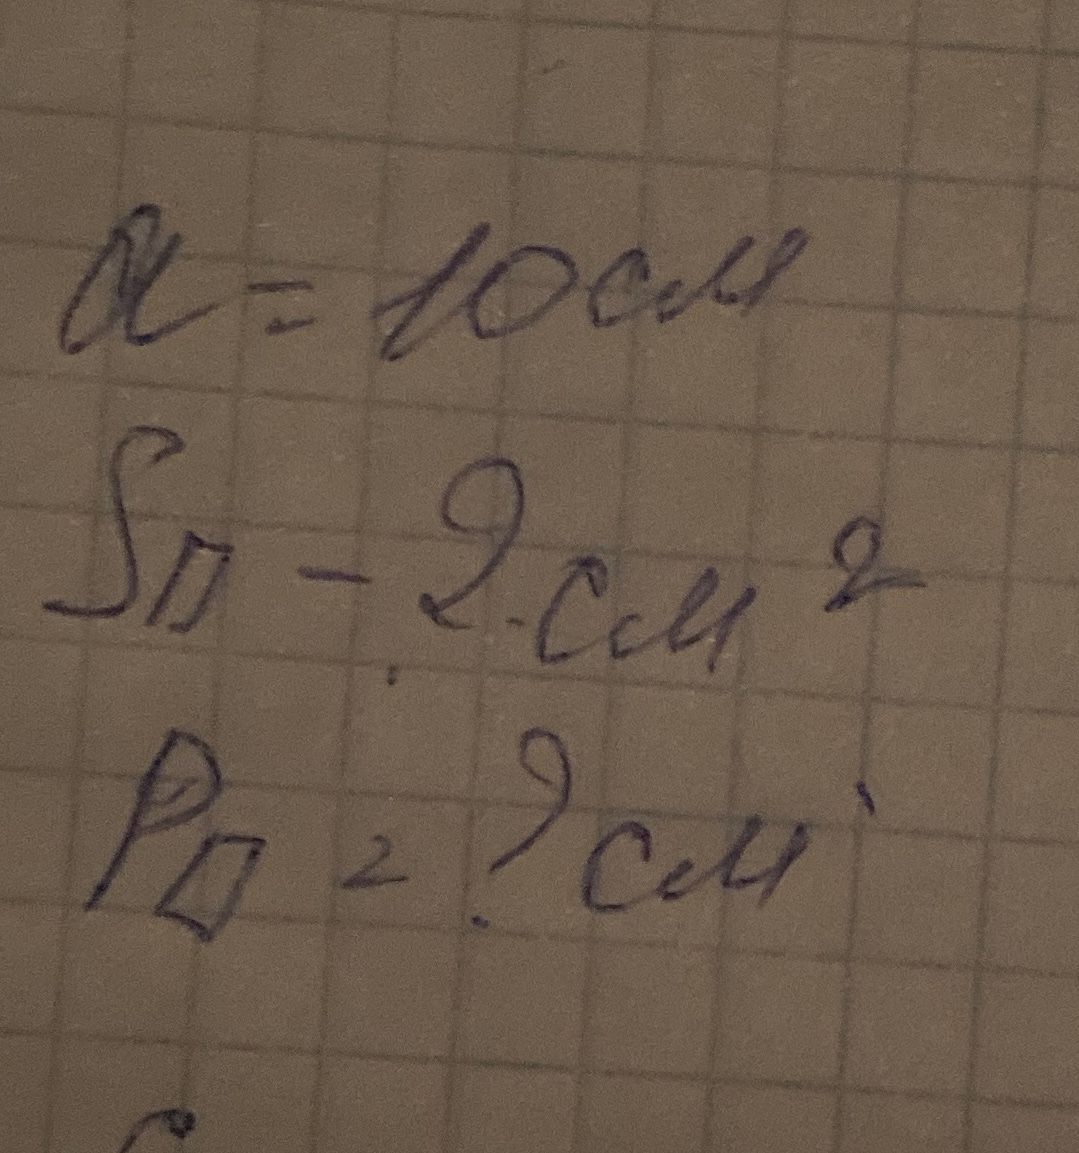 a = 10 см
S□ - ? см²
P□ = ? см